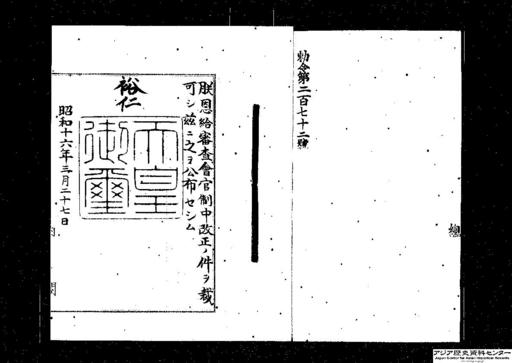 勅令第二百七十二號
總
朕恩給審査會官制中改正ノ件ヲ裁
可シ茲ニ之ヲ公布セシム
裕仁
天皇
御璽
昭和十六年三月二十七日
内
閣
アジア歴史資料センター
Japan Center for Asian Historical Records